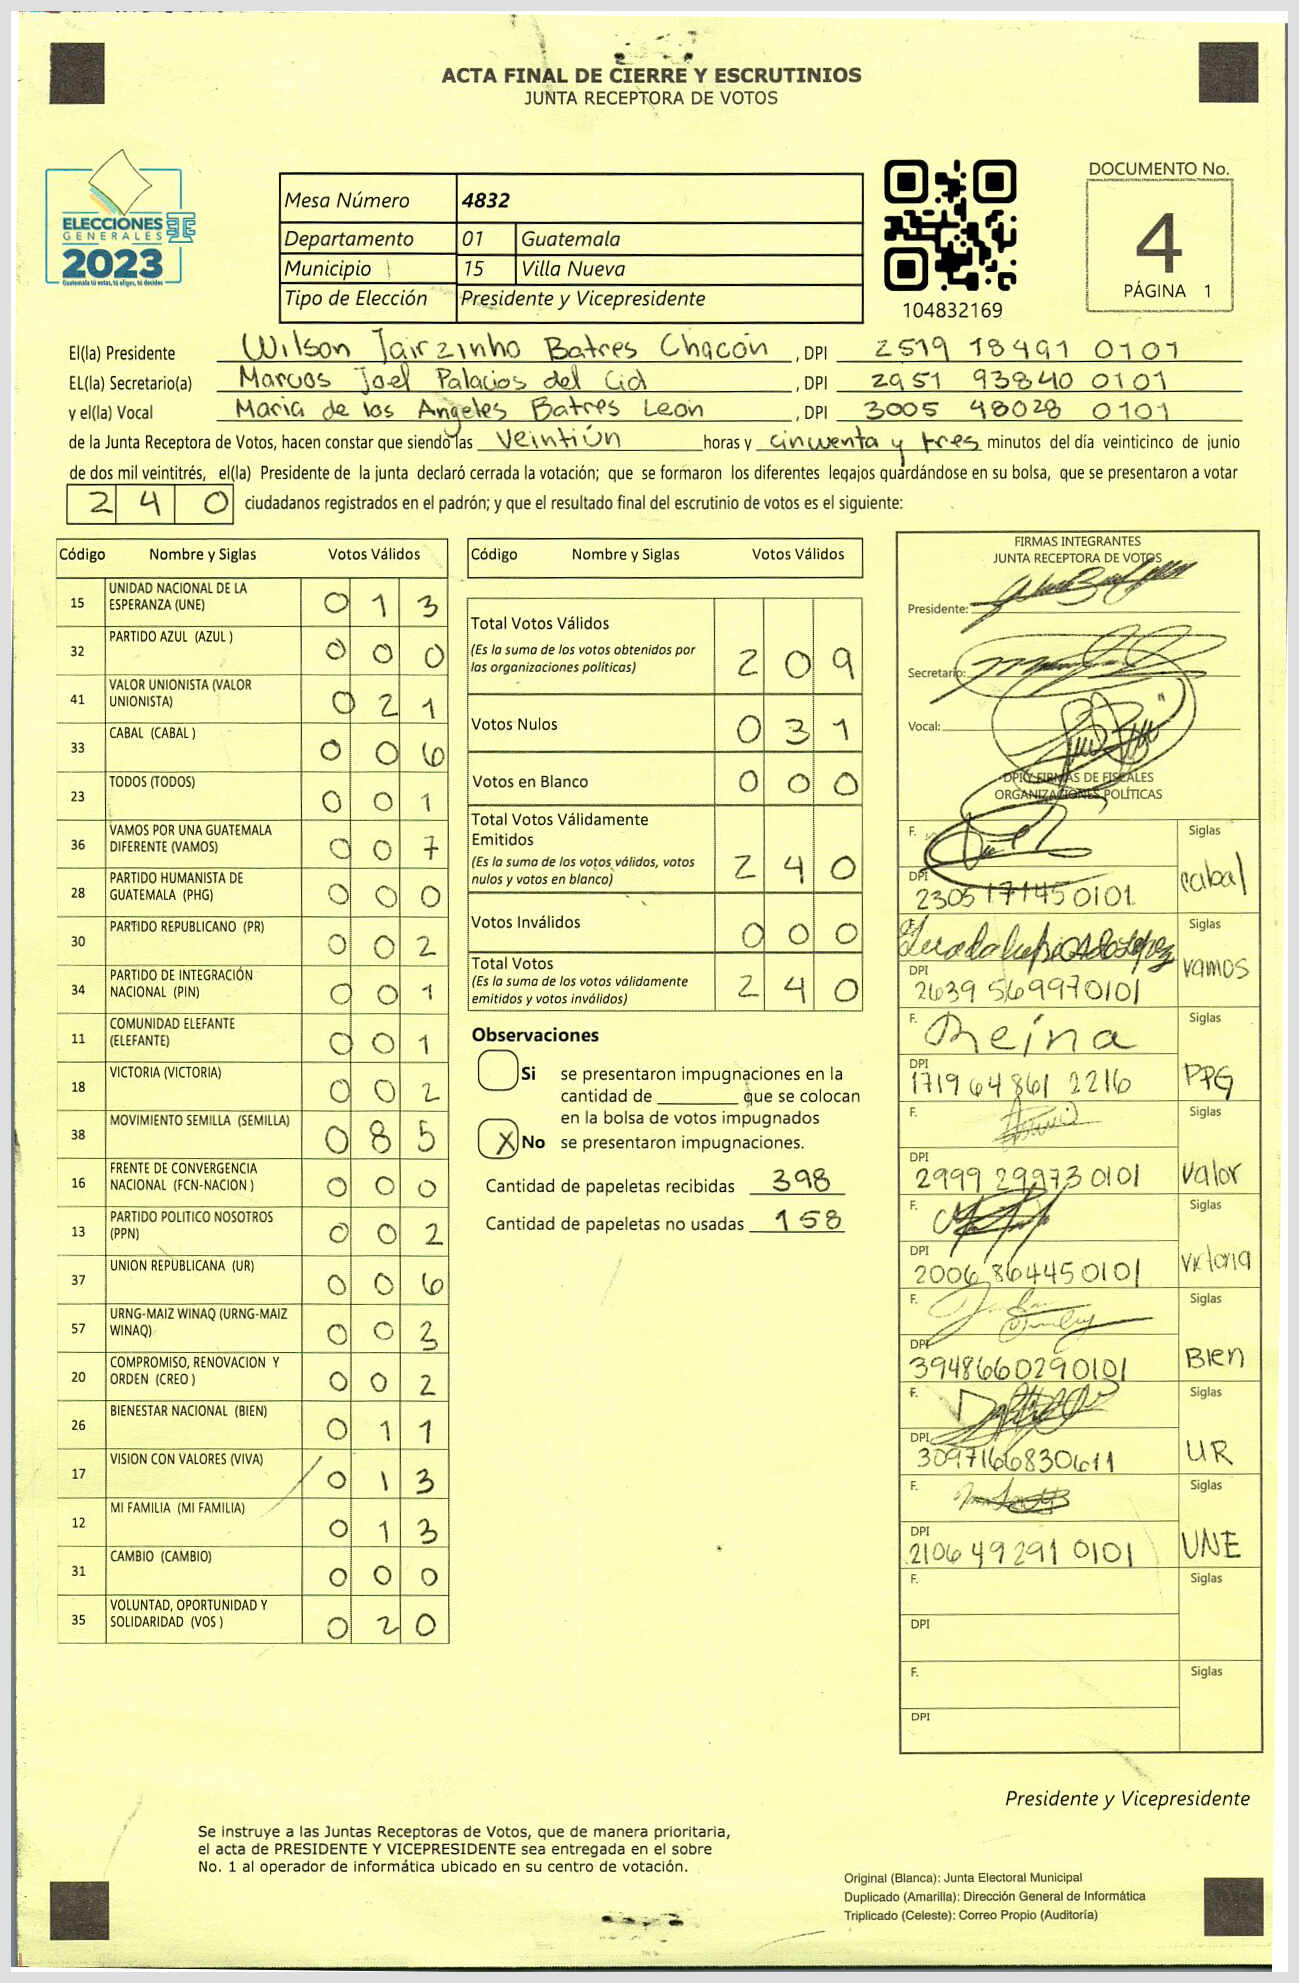 ACTA FINAL DE CIERRE Y ESCRUTINIOS
JUNTA RECEPTORA DE VOTOS
ELECCIONES
GENERALES
2023
Guatemala tú votas, tú eliges, tú decides
Mesa Número 4832
Departamento 01 Guatemala
Municipio 15 Villa Nueva
Tipo de Elección Presidente y Vicepresidente
104832169
DOCUMENTO No.
4
PÁGINA 1
El(la) Presidente Wilson Jairzinho Batres Chacón, DPI 2519 18491 0101
EL(la) Secretario(a) Marcos Joel Palacios del Cid, DPI 2951 93840 0101
y el(la) Vocal Maria de los Angeles Batres Leon, DPI 3005 48028 0101
de la Junta Receptora de Votos, hacen constar que siendo las veintiún horas y cincuenta y tres minutos del día veinticinco de junio
de dos mil veintitrés, el(la) Presidente de la junta declaró cerrada la votación; que se formaron los diferentes legajos guardándose en su bolsa, que se presentaron a votar
240 ciudadanos registrados en el padrón; y que el resultado final del escrutinio de votos es el siguiente:
Código Nombre y Siglas Votos Válidos
15 UNIDAD NACIONAL DE LA ESPERANZA (UNE) 013
32 PARTIDO AZUL (AZUL ) 000
41 VALOR UNIONISTA (VALOR UNIONISTA) 021
33 CABAL (CABAL ) 006
23 TODOS (TODOS) 001
36 VAMOS POR UNA GUATEMALA DIFERENTE (VAMOS) 007
28 PARTIDO HUMANISTA DE GUATEMALA (PHG) 000
30 PARTIDO REPUBLICANO (PR) 002
34 PARTIDO DE INTEGRACIÓN NACIONAL (PIN) 001
11 COMUNIDAD ELEFANTE (ELEFANTE) 001
18 VICTORIA (VICTORIA) 002
38 MOVIMIENTO SEMILLA (SEMILLA) 085
16 FRENTE DE CONVERGENCIA NACIONAL (FCN-NACION ) 000
13 PARTIDO POLITICO NOSOTROS (PPN) 002
37 UNION REPUBLICANA (UR) 006
57 URNG-MAIZ WINAQ (URNG-MAIZ WINAQ) 003
20 COMPROMISO, RENOVACION Y ORDEN (CREO ) 002
26 BIENESTAR NACIONAL (BIEN) 011
17 VISION CON VALORES (VIVA) 013
12 MI FAMILIA (MI FAMILIA) 013
31 CAMBIO (CAMBIO) 000
35 VOLUNTAD, OPORTUNIDAD Y SOLIDARIDAD (VOS ) 020
Código Nombre y Siglas Votos Válidos
Total Votos Válidos 209
(Es la suma de los votos obtenidos por
las organizaciones políticas)
Votos Nulos 031
Votos en Blanco 000
Total Votos Válidamente
Emitidos 240
(Es la suma de los votos válidos, votos
nulos y votos en blanco)
Votos Inválidos 000
Total Votos 240
(Es la suma de los votos válidamente
emitidos y votos inválidos)
Observaciones
Si se presentaron impugnaciones en la
cantidad de ________ que se colocan
en la bolsa de votos impugnados
X No se presentaron impugnaciones.
Cantidad de papeletas recibidas 398
Cantidad de papeletas no usadas 158
FIRMAS INTEGRANTES
JUNTA RECEPTORA DE VOTOS
Presidente:
Secretario:
Vocal:
DPI Y FIRMAS DE FISCALES
ORGANIZACIONES POLÍTICAS
F. Siglas
DPI 2305 17145 0101 cabal
F. Siglas
DPI 2639 56997 0101 vamos
F. Reina Siglas
DPI 1719 64861 2216 PPG
F. Siglas
DPI 2999 29973 0101 valor
F. Siglas
DPI 2006 86445 0101 victoria
F. Siglas
DPI 3948660290101 Bien
F. Siglas
DPI 3097166830611 UR
F. Siglas
DPI 2106 49291 0101 UNE
F. Siglas
DPI
F. Siglas
DPI
Presidente y Vicepresidente
Se instruye a las Juntas Receptoras de Votos, que de manera prioritaria,
el acta de PRESIDENTE Y VICEPRESIDENTE sea entregada en el sobre
No. 1 al operador de informática ubicado en su centro de votación.
Original (Blanca): Junta Electoral Municipal
Duplicado (Amarilla): Dirección General de Informática
Triplicado (Celeste): Correo Propio (Auditoría)